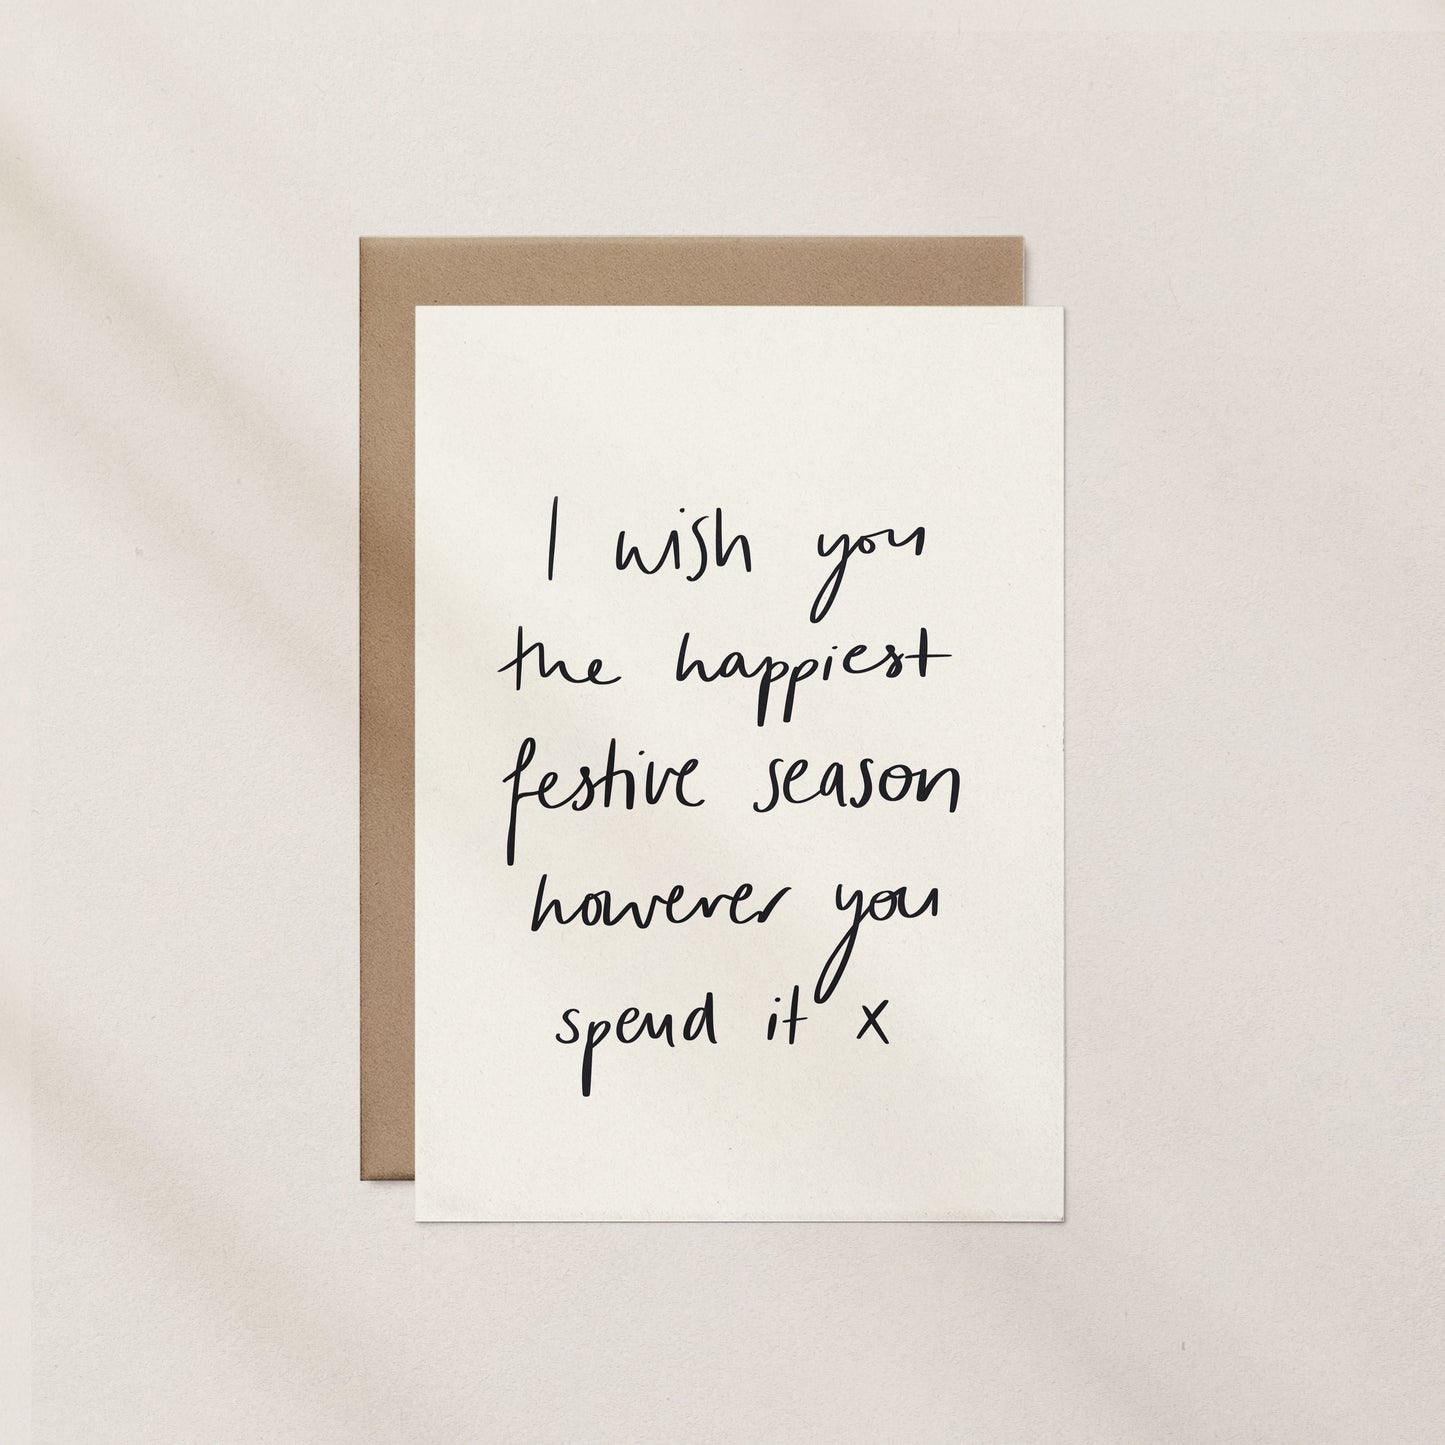 I wish you
the happiest
festive season
however you
spend it x